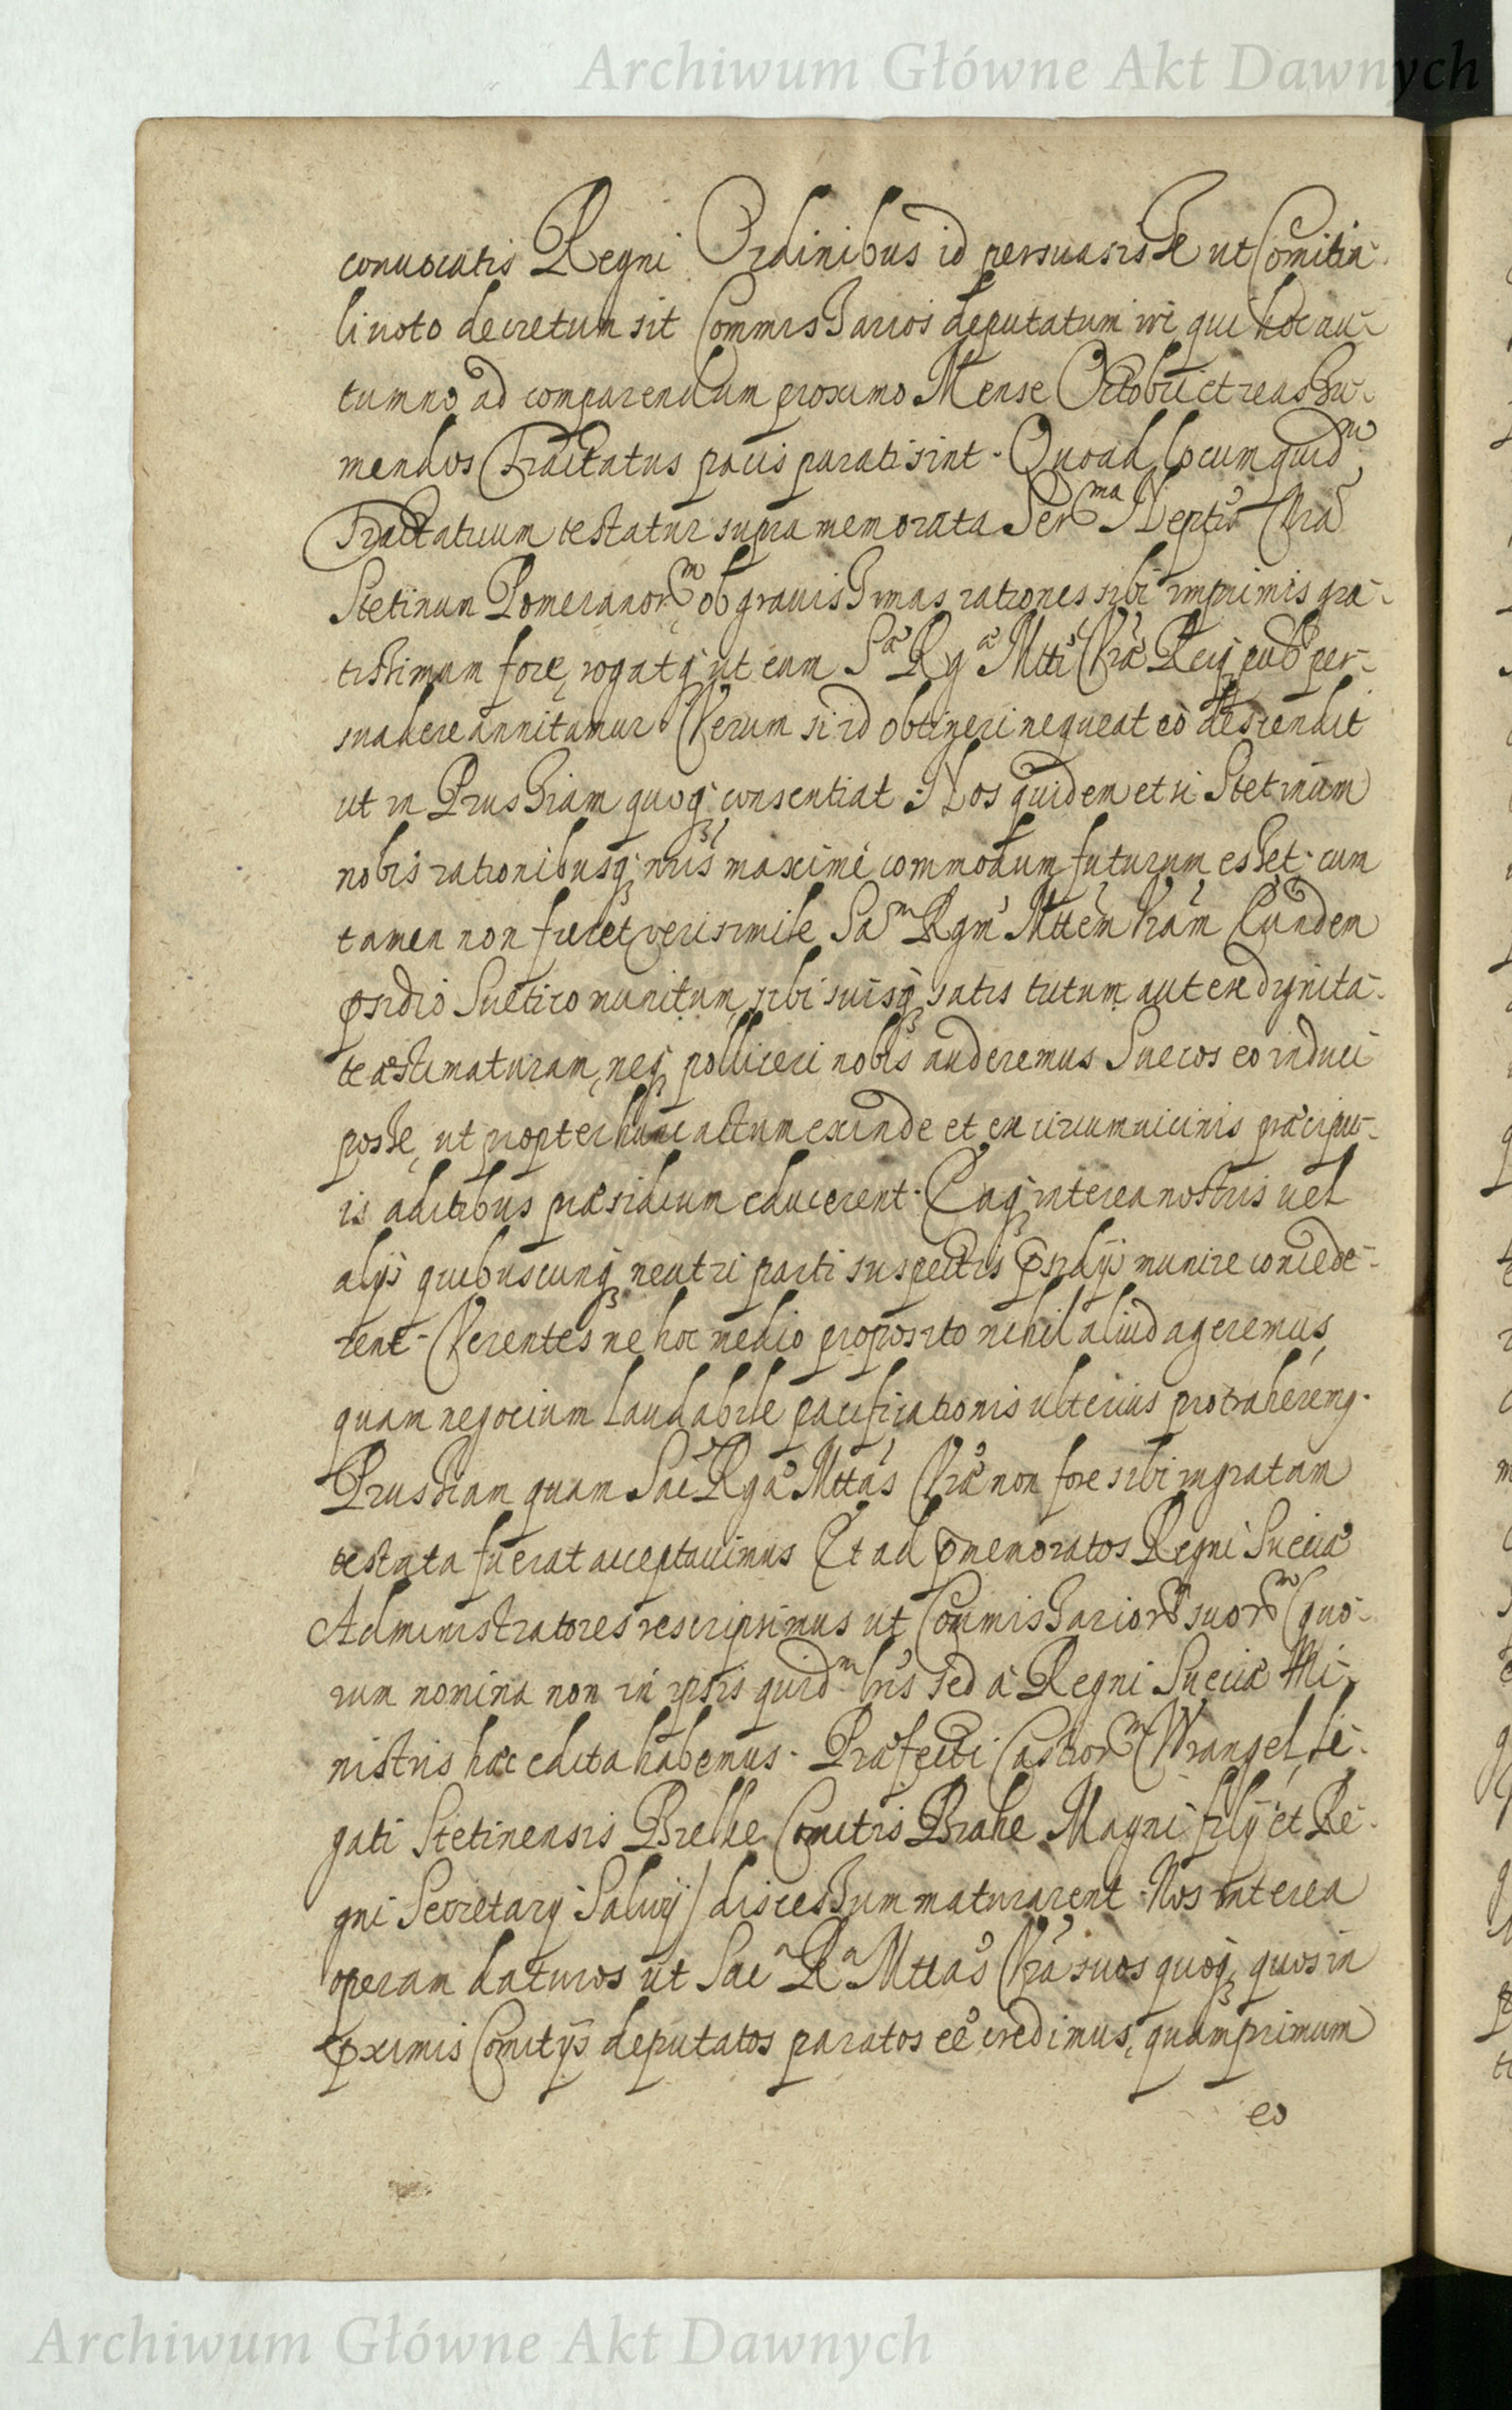 Archiwum Główne Akt Dawnych
convocatis Regni Ordinibus id persuasisse ut Comitia-
li voto decretum sit Commissarios deputatum iri qui hoc au-
tumno ad comparendum proximo Mense Octobri et reassu-
mendos Tractatus pacis parati sint. Quoad locum quidm
Tractatuum testatur supra memorata Serma Neptis Vra
Stetinum Pomeranorm ob gravissimas rationes sibi imprimis gra-
tissimum fore, rogatq ut eam Sa Rg a Mtti Vrae Reiq pub per-
suadere annitamur. Verum si id obtineri nequeat eò descendit
ut in Prussiam quoq consentiat. Nos quidem etsi Stetinum
nobis rationibusq nris maximè commodum futurum esset. cum
tamen non fieret verisimile Sam Rgm Mttem Vram Eundem
psidio Suetico munitum, sibi suisq satis tutum aut ex dignita-
te aestimaturam, neq polliceri nobis auderemus Suecos eo induci
posse, ut propter hunc actum exinde et ex circumvicinis praecipu-
is aditibus praesidium educerent. Eaq interea nostris vel
alijs quibuscunq neutri parti suspectis psidijs munire concede-
rent. Verentes ne hoc medio proposito nihil aliud ageremus,
quam negocium laudabile pacificationis ulterius protraheremq.
Prussiam quam Sac Rga Mttas Vra non fore sibi ingratam
testata fuerat acceptavimus Et ad pmemoratos Regni Sueciae
Administratores rescripsimus ut Commissariorm suorm (quo-
rum nomina non in ipsis quidm lris sed à Regni Sueciae Mi-
nistris hac edita habemus. Praefecti Castrorm Wrangel, Le-
gati Stetinensis Bielke Comitis Brahe Magni filij et Re-
gni Secretarij Salvij) discessum maturarent. Nos interea
operam daturos ut Sac Ra Mttas Vra suos quoq, quos in
pximis Comitijs deputatos paratos eè credimus, quamprimum
eo
Archiwum Główne Akt Dawnych